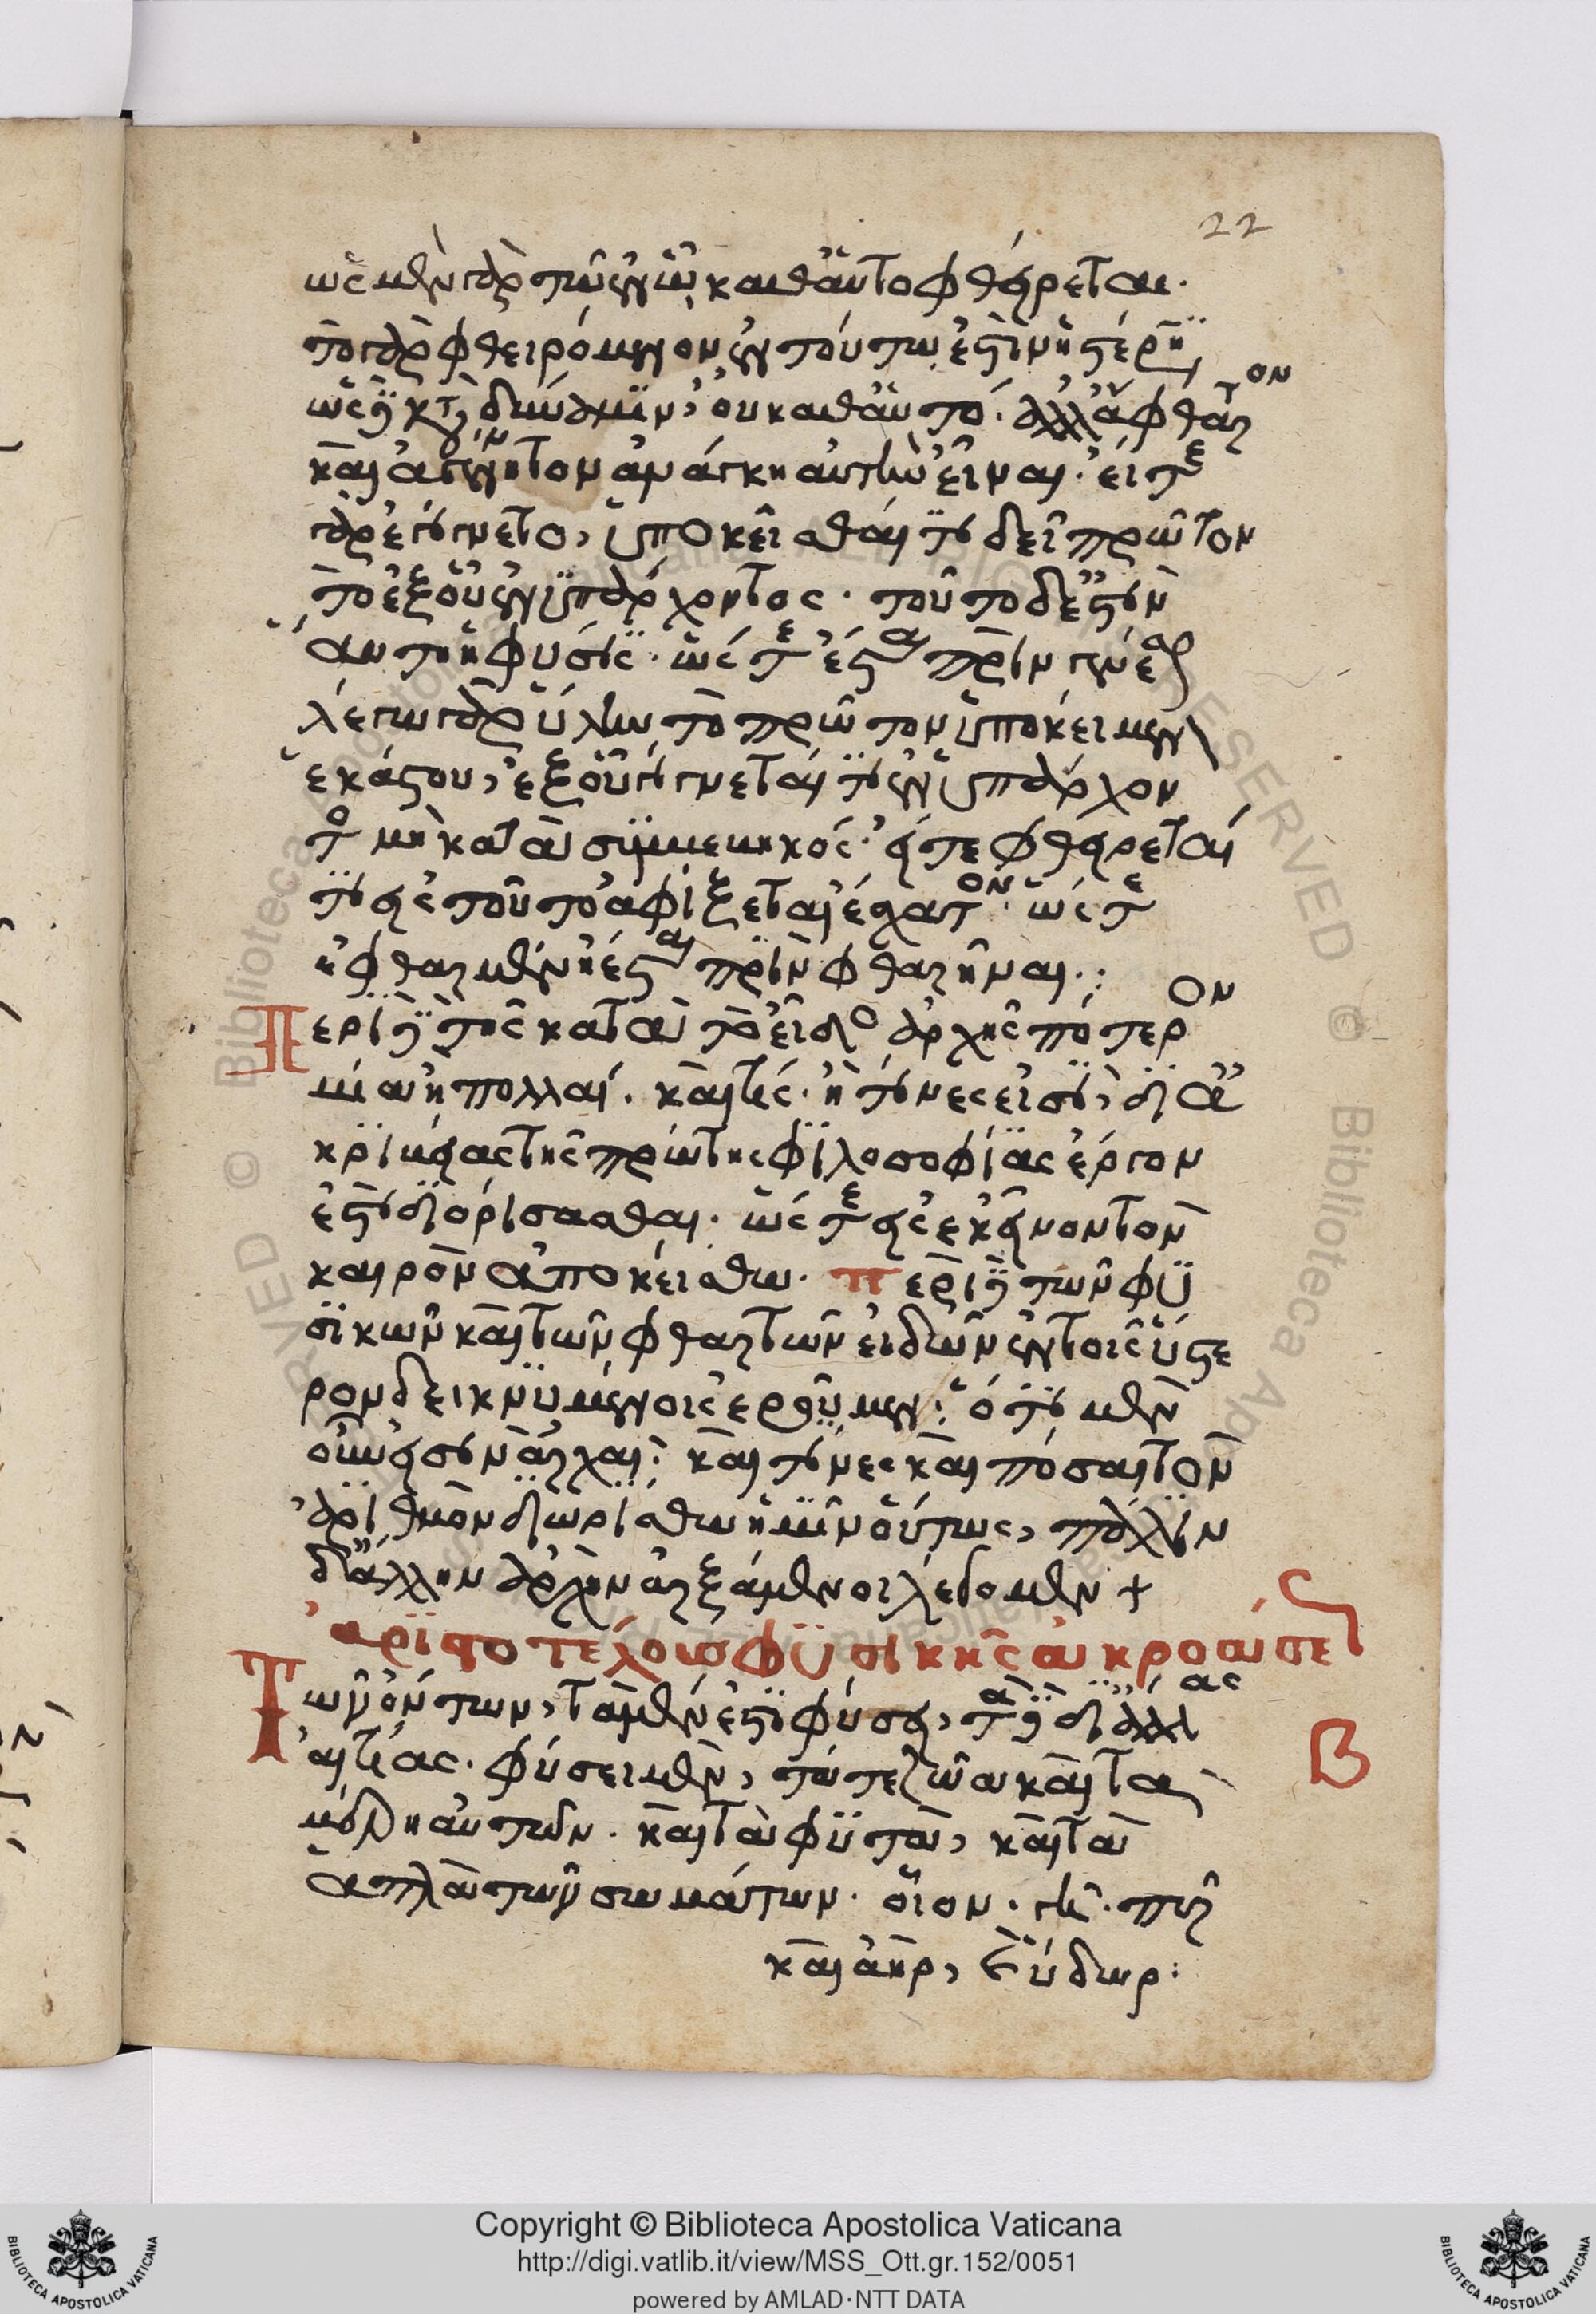 22
ὡς μὲν γὰρ τὸ ἐν ᾧ, καθ' αὑτὸ φθείρεται.
τὸ γὰρ φθειρόμενον ἐν τούτῳ ἐστὶν ἡ στέρησις,
ὡς δὲ κατὰ δύναμιν, οὐ καθ' αὑτό. ἀλλ' ἄφθαρτον
καὶ ἀγένητον ἀνάγκη αὐτὴν εἶναι. εἴτε
γὰρ ἐγίγνετο, ὑποκεῖσθαί τι δεῖ πρῶτον
τὸ ἐξ οὗ ἐνυπάρχοντος. τοῦτο δέ ἐστιν
αὐτὸ ἡ φύσις. ὥστε ἔσται πρὶν γενέσθαι
λέγω γὰρ ὕλην, τὸ πρῶτον ὑποκείμενον
ἑκάστου, ἐξ οὗ γίγνεταί τι ἐνυπάρχον
τος μὴ κατὰ συμβεβηκός. εἴτε φθείρεταί
τι εἰς τοῦτο ἀφίξεται ἔσχατον. ὥστε
ἐφθαρμένη ἔσται πρὶν φθαρῆναι.:
Περὶ δὲ τῆς κατὰ τὸ εἶδος ἀρχῆς πότερον
μία ἢ πολλαί. καὶ τίς. ἢ τίνες εἰσί, δι' ἀ
κριβείας τῆς πρώτης φιλοσοφίας ἔργον
ἐστὶ διορίσασθαι. ὥστε εἰς ἐκεῖνον τὸν
καιρὸν ἀποκείσθω. περὶ δὲ τῶν φυ
σικῶν καὶ τῶν φθαρτῶν εἰδῶν ἐν τοῖς ὕστε
ρον δεικνυμένοις ἐροῦμεν. ὅτι μὲν
οὖν εἰσὶν ἀρχαί. καὶ τίνες καὶ πόσαι τὸν
ἀριθμὸν διωρίσθω ἡμῖν οὕτως, πάλιν
δ' ἄλλην ἀρχὴν ἀρξάμενοι λέγομεν +
ἀριστοτέλους φυσικῆς ἀκροάσεως
Τῶν ὄντων, τὰ μέν ἐστι φύσει, τὰ δὲ δι' ἄλλας
αἰτίας. φύσει μέν, τά τε ζῷα καὶ τὰ
μέρη αὐτῶν. καὶ τὰ φυτά, καὶ τὰ
ἁπλᾶ τῶν σωμάτων. οἷον. γῆ. πῦρ
Β
καὶ ἀήρ, καὶ ὕδωρ:
Copyright © Biblioteca Apostolica Vaticana
http://digi.vatlib.it/view/MSS_Ott.gr.152/0051
powered by AMLAD·NTT DATA
BIBLIOTECA APOSTOLICA VATICANA
BIBLIOTECA APOSTOLICA VATICANA